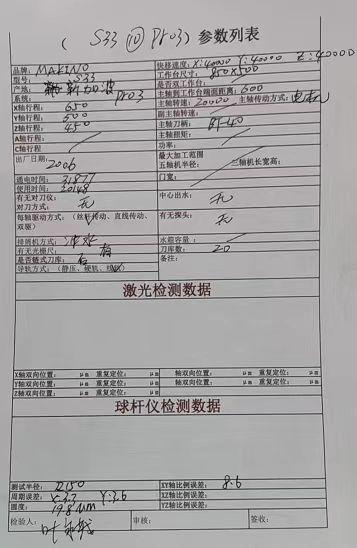 ( S33 ⑩ Pro3 ) 参数列表
品牌: MAKINO 快移速度: X:40000 Y:40000 Z:40000
型号: S33 工作台尺寸: 850X500
产地: 新加坡 是否双工作台:
系统: Pro3 主轴到工作台端面距离: 600
X轴行程: 650 主轴转速: 20000 主轴传动方式:
Y轴行程: 500 副主轴转速:
Z轴行程: 450 主轴刀柄: BT-40
A轴行程: 主轴扭矩:
C轴行程: 功率:
出厂日期: 2006 最大加工范围
五轴机半径: 三轴机长宽高:
通电时间: 31877 门宽:
使用时间: 20148
有无对刀仪: 无 中心出水: 无
对刀方式:
每轴驱动方式: (丝杆传动、直线传动、双驱) 有无探头: 无
排屑机方式: 冲水 水箱容量:
有无光栅尺: 有 刀库数: 20
是否链式刀库: 否 备注:
导轨方式: (静压、硬轨、线轨)
激光检测数据
X轴双向位置: μm 重复定位: μm 轴双向位置: μm 重复定位: μm
Y轴双向位置: μm 重复定位: μm 轴双向位置: μm 重复定位: μm
Z轴双向位置: μm 重复定位: μm
球杆仪检测数据
测试半径: R150 XY轴比例误差: 8.6
周期误差: X:3.3 Y:3.6 XZ轴比例误差:
圆度: 19.8μm YZ轴比例误差:
检验人: 审核: 签收: